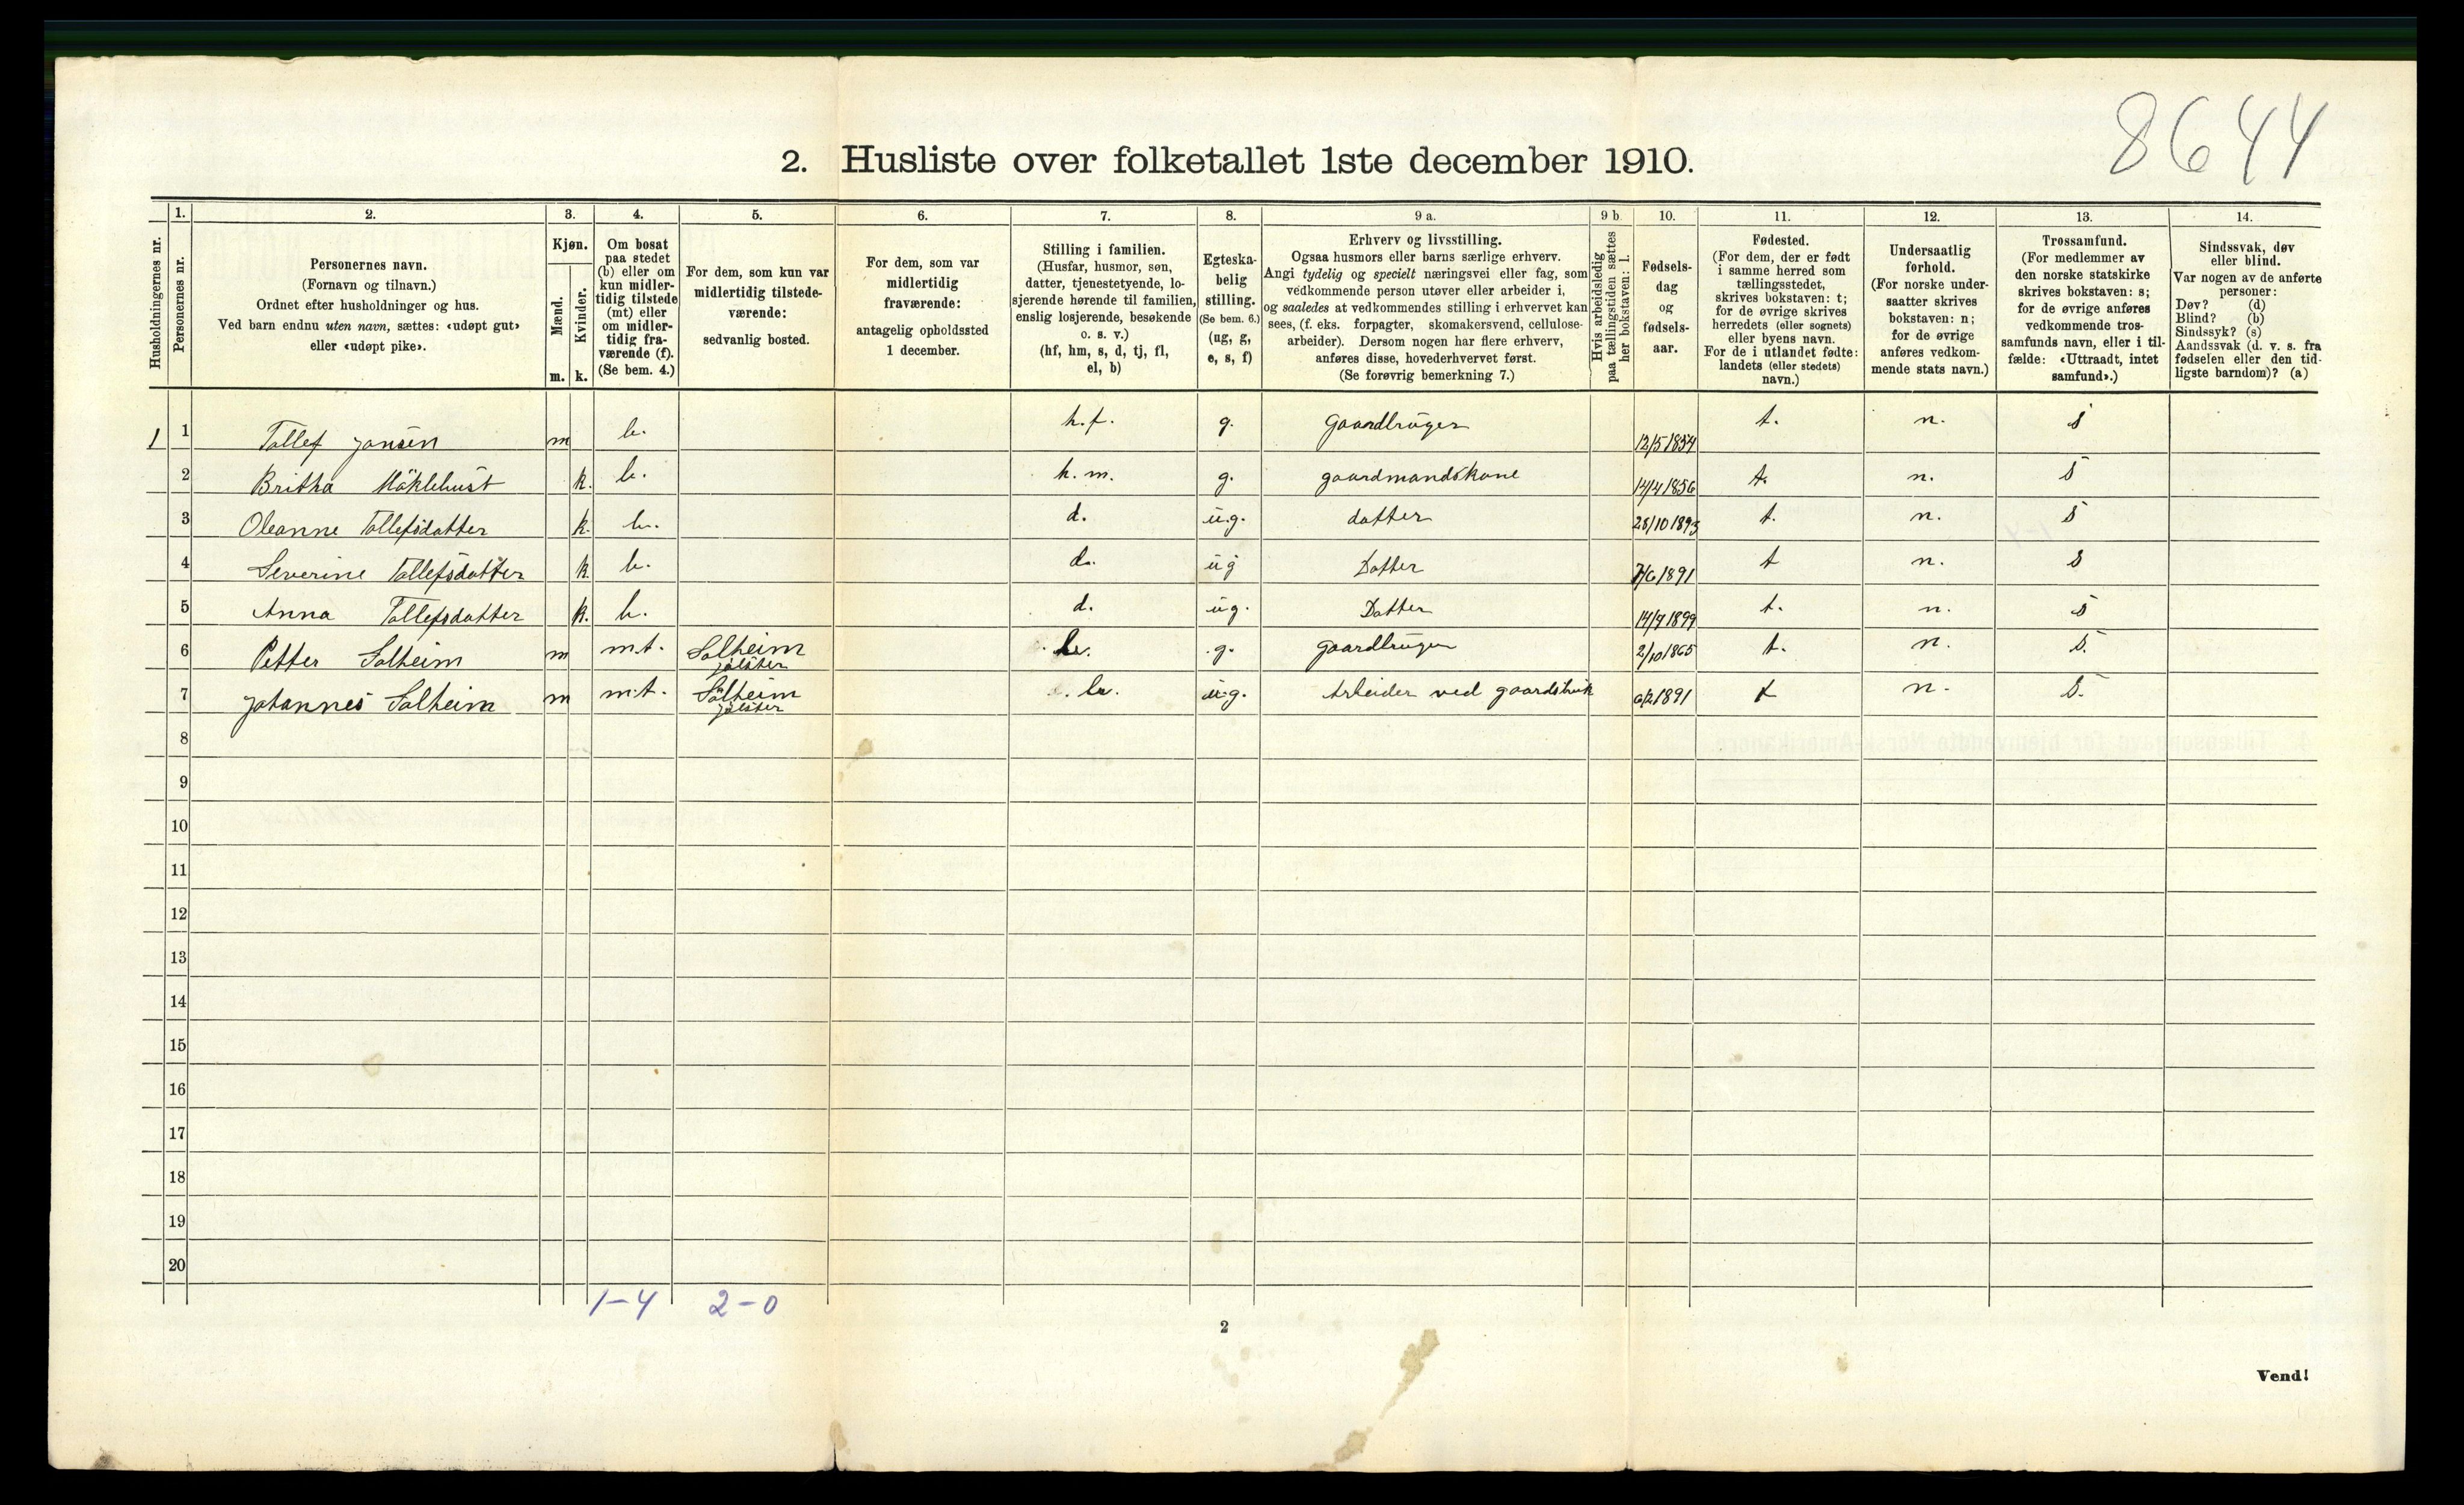 8644
2. Husliste over folketallet 1ste december 1910.
Husholdningernes nr.
1.
Personernes nr.
2.
Personernes navn.
(Fornavn og tilnavn.)
Ordnet efter husholdninger og hus.
Ved barn endnu uten navn, sættes: «udøpt gut»
eller «udøpt pike».
3.
Kjøn.
Mænd.
Kvinder.
m. k.
4.
Om bosat
paa stedet
(b) eller om
kun midler-
tidig tilstede
(mt) eller
om midler-
tidig fra-
værende (f).
(Se bem. 4.)
5.
For dem, som kun var
midlertidig tilstede-
værende:
sedvanlig bosted.
6.
For dem, som var
midlertidig
fraværende:
antagelig opholdssted
1 december.
7.
Stilling i familien.
(Husfar, husmor, søn,
datter, tjenestetyende, lo-
sjerende hørende til familien,
enslig losjerende, besøkende
o. s. v.)
(hf, hm, s, d, tj, fl,
el, b)
8.
Egteska-
belig
stilling.
(Se bem. 6.)
(ug, g,
e, s, f)
9 a.
Erhverv og livsstilling.
Ogsaa husmors eller barns særlige erhverv.
Angi tydelig og specielt næringsvei eller fag, som
vedkommende person utøver eller arbeider i,
og saaledes at vedkommendes stilling i erhvervet kan
sees, (f. eks. forpagter, skomakersvend, cellulose-
arbeider). Dersom nogen har flere erhverv,
anføres disse, hovederhvervet først.
(Se forøvrig bemerkning 7.)
9 b.
Hvis arbeidsledig
paa tællingstiden sættes
her bokstaven: l.
10.
Fødsels-
dag
og
fødsels-
aar.
11.
Fødested.
(For dem, der er født
i samme herred som
tællingsstedet,
skrives bokstaven: t;
for de øvrige skrives
herredets (eller sognets)
eller byens navn.
For de i utlandet fødte:
landets (eller stedets)
navn.)
12.
Undersaatlig
forhold.
(For norske under-
saatter skrives
bokstaven: n;
for de øvrige
anføres vedkom-
mende stats navn.)
13.
Trossamfund.
(For medlemmer av
den norske statskirke
skrives bokstaven: s;
for de øvrige anføres
vedkommende tros-
samfunds navn, eller i til-
fælde: «Uttraadt, intet
samfund».)
14.
Sindssvak, døv
eller blind.
Var nogen av de anførte
personer:
Døv? (d)
Blind? (b)
Sindssyk? (s)
Aandssvak (d. v. s. fra
fødselen eller den tid-
ligste barndom)? (a)
1 1 Tollef Jansen m b. h.f. g. Gaardbruger 12/5 1854 t. n. s
2 Britha Myklebust k. b. h.m. g. gaardmandskone 14/4 1856 t. n. s
3 Oleanne Tollefsdatter k. b. d. u.g. datter 28/10 1893 t. n. s
4 Severine Tollefsdatter k. b. d. ug Datter 7/6 1891 t n. s
5 Anna Tollefsdatter k. b. d. ug. Datter 14/7 1899 t. n. s
6 Petter Solheim m m.t. Solheim Jølster b. g. gaardbruger 2/10 1865 t. n. s.
7 Johannes Solheim m m.t. Solheim Jølster b. u.g. Arbeider ved gaardsbruk 6/2 1891 t n. s.
8
9
10
11
12
13
14
15
16
17
18
19
20
1-4 2-0
2
Vend!